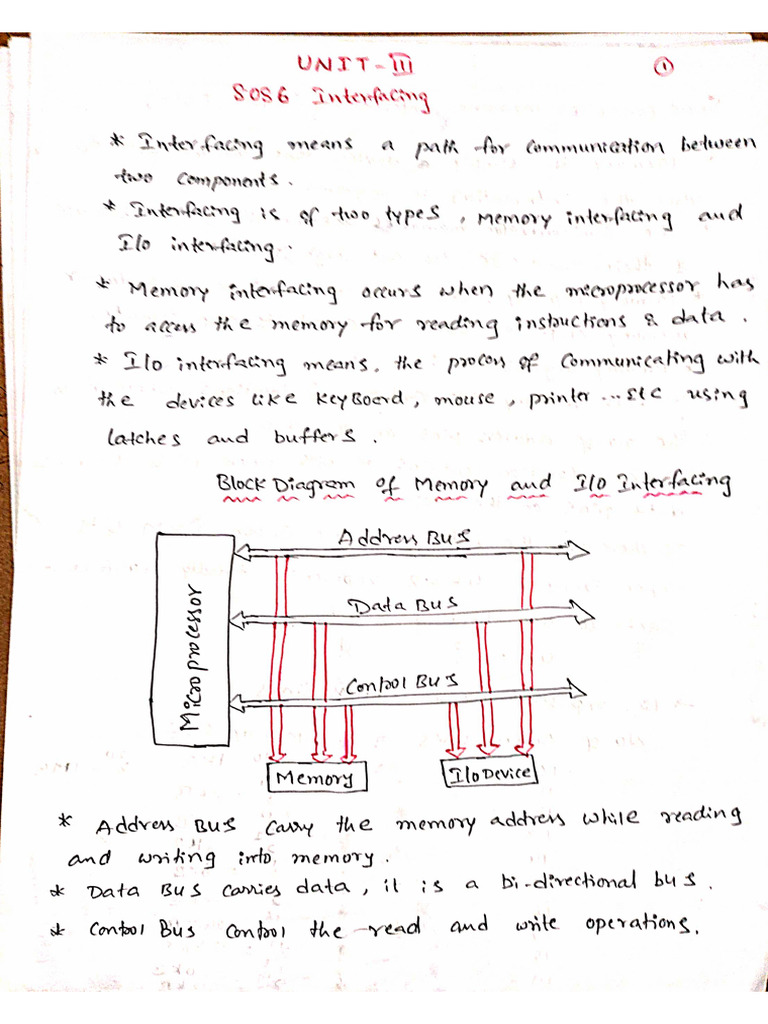 UNIT-III
①
8086 Interfacing
* Interfacing means a path for communication between
two components.
* Interfacing is of two types, Memory interfacing and
I/o interfacing.
* Memory interfacing occurs when the microprocessor has
to access the memory for reading instructions & data.
* I/o interfacing means, the process of communicating with
the devices like keyBoard, mouse, printer ... etc using
latches and buffers.
Block Diagram of Memory and I/o Interfacing
Address Bus
Data Bus
Control Bus
Microprocessor
Memory
I/o Device
* Address Bus carry the memory address while reading
and writing into memory.
* Data Bus carries data, it is a bi-directional bus.
* Control Bus control the read and write operations.